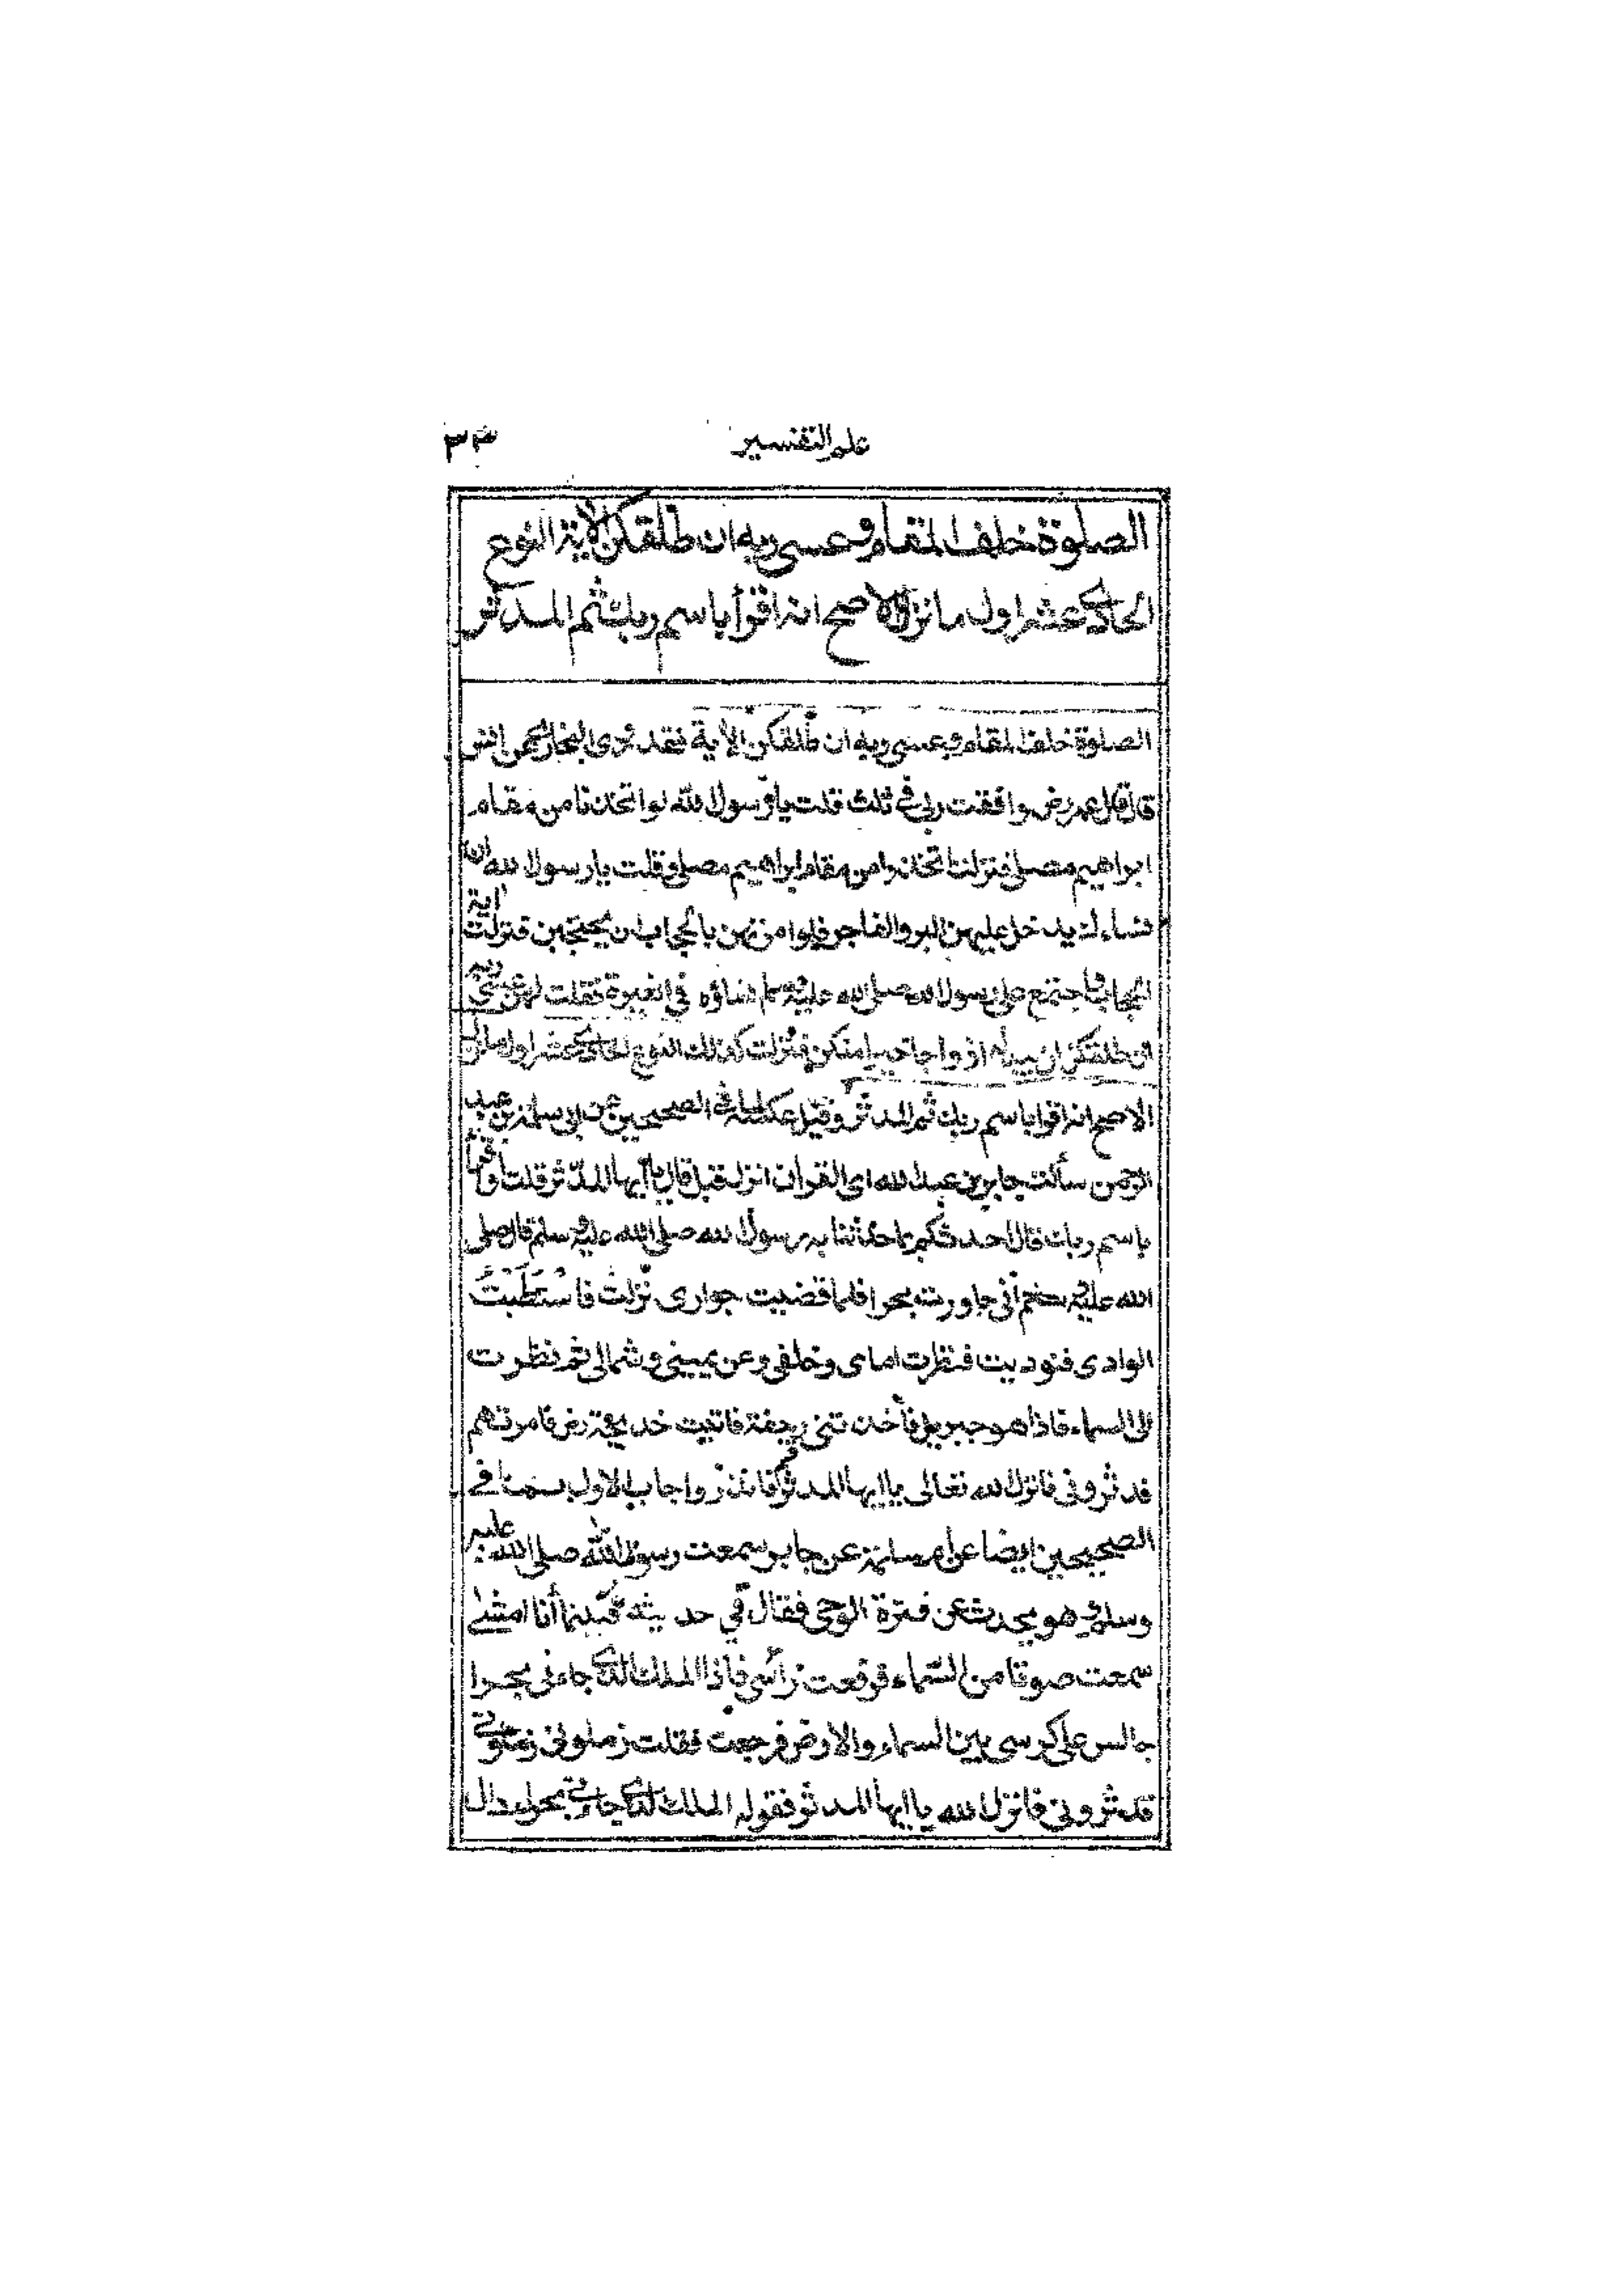 علم التفسير ٣٣
الصلوة خلف المقام وعسى ربه ان طلقكن الاية النوع
الحادي عشر اول ما نزل الاصح انه اقرأ باسم ربك ثم المدثر
الصلوة خلف المقام وعسى ربه ان طلقكن الاية فقد روى البخاري عن انس
قال قال عمر رض وافقت ربي في ثلث قلت يا رسول الله لو اتخذنا من مقام
ابراهيم مصلى فنزلت اتخذوا من مقام ابراهيم مصلى وقلت يا رسول الله ان
نساءك يدخل عليهن البر والفاجر فلو امرتهن بالحجاب ان يحتجبن فنزلت اية
الحجاب واجتمع على رسول الله صلى الله عليه وسلم نساؤه في الغيرة فقلت لهن عسى ربه
ان طلقكن ان يبدله ازواجا خيرا منكن فنزلت كذلك النوع الحادي عشر اول ما نزل
الاصح انه اقرا باسم ربك ثم المدثر وقيل عكسه لما في الصحيحين عن ابي سلمة بن عبد
الرحمن سألت جابر بن عبد الله اي القران انزل قبل قال يا ايها المدثر قلت او اقرأ
باسم ربك قال احدثكم بما حدثنا به رسول الله صلى الله عليه وسلم قال صلى
الله عليه وسلم اني جاورت بحرا فلما قضيت جواري نزلت فاستبطنت
الوادى فنوديت فنظرت امامى وخلفى وعن يمينى وشمالى ثم نظرت
الى السماء فاذا هو جبريل فأخذتنى رجفة فاتيت خديجة رض فامرتهم
فدثرونى فانزل الله تعالى يا ايها المدثر قم فانذر واجاب الاول بما فى
الصحيحين ايضا عن ابى سلمة عن جابر سمعت رسول الله صلى الله عليه
وسلم وهو يحدث عن فترة الوحى فقال فى حديثه فبينما أنا امشى
سمعت صوتا من السماء فرفعت رأسى فاذا الملك الذى جاءنى بحرا
جالس على كرسى بين السماء والارض فرجعت فقلت زملونى زملونى
فدثرونى فانزل الله يا ايها المدثر فقوله الملك الذى جاءنى بحراء دال